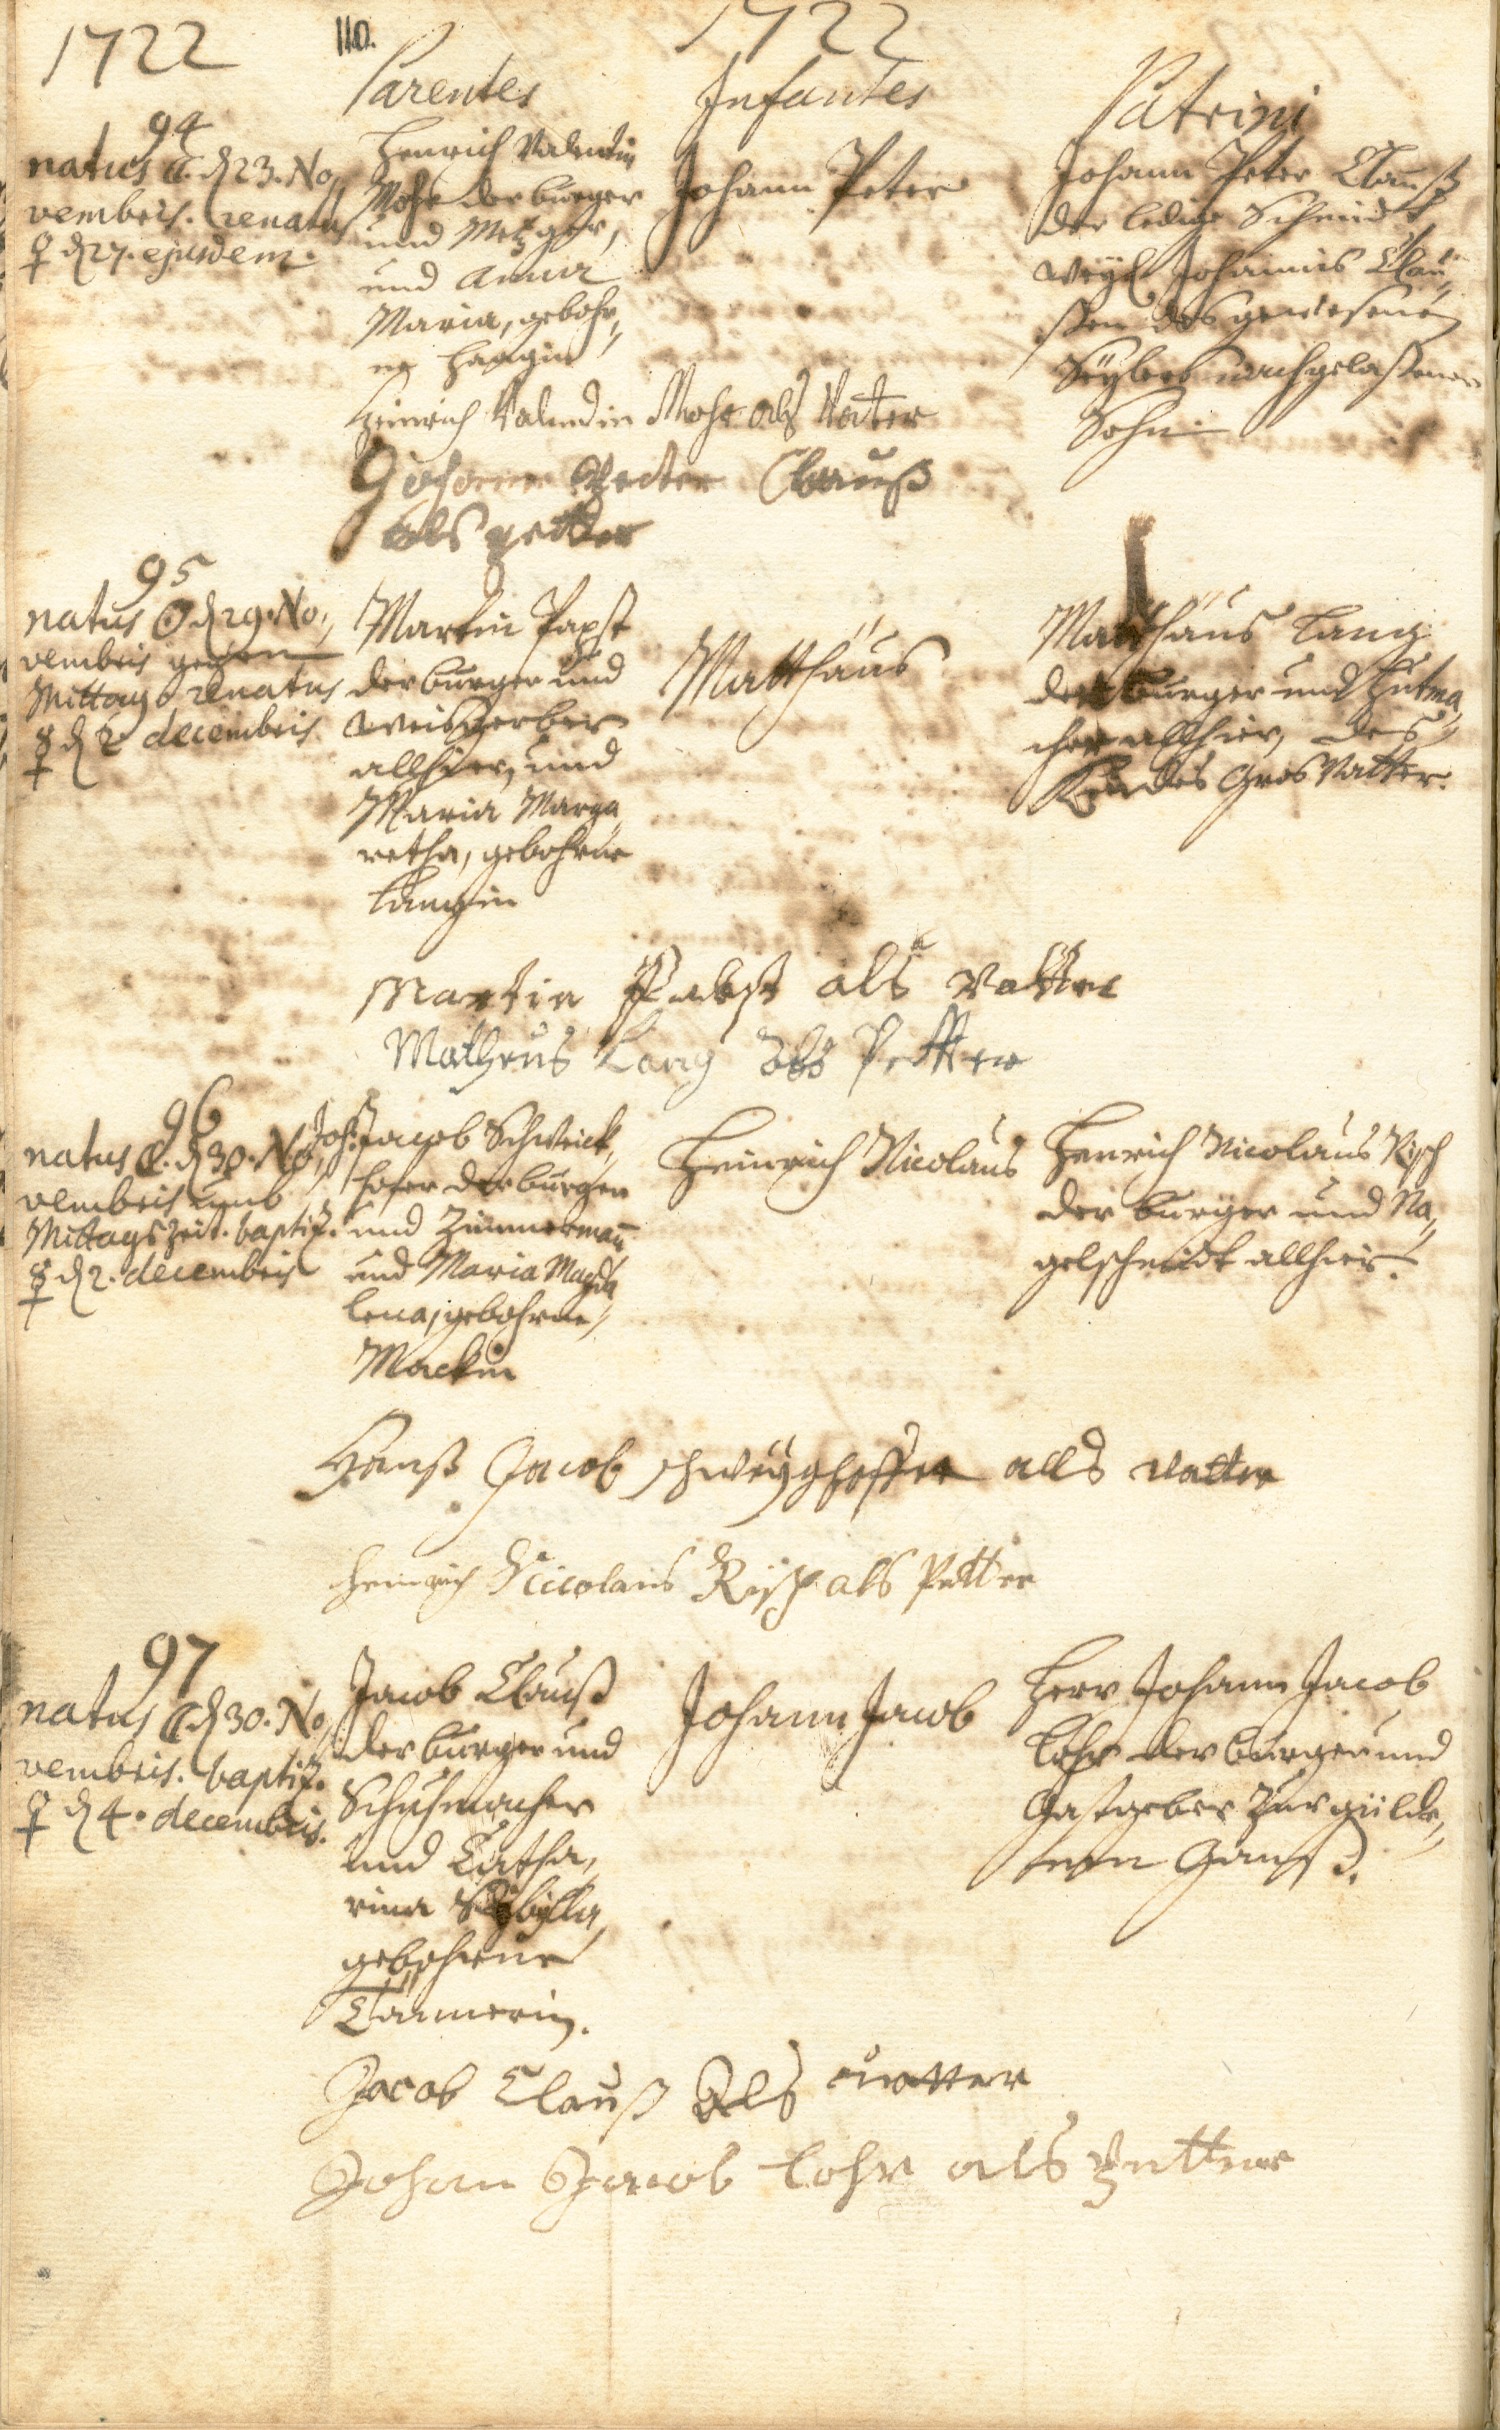 1722
110.
1722
Parentes
Infantes
Patrini
94
natus ☾. d 23. No,,
vembris. renatus
♀ d 27. ejusdem.
Henrich Valentin
Mohr der burger
und Metzger,
und Anna
Maria, gebohr,,
ne Haagin
Johann Peter
Johann Peter Clauß
der ledige Schmidt
weyl. Johannis Clau,,
ßen des gewesenen
Seylers nachgelaßener
Sohn
Heinrich Valendin Mohr als Vater
Johann Peter Clauß
als petter
95
natus ☉ d 29. No,,
vembris gegen
Mittag, renatus
☿ d 2. decembris
Martin Papst
der burger und
Weisgerber
allhier, und
Maria Marga,,
retha, gebohrne
Langin
Matthäus
Matthäus Lang
der burger und Hutma,,
cher allhier, des
Kindes Gros Vatter.
Martin Pabst als Vatter
Matheus Lang als Petter
96
natus ☾. d 30. No,,
vembris umb
Mittags Zeit. baptiz.
☿ d 2. decembris
Joh. Jacob Schweick,,
hofer der burger
und Zimmermann
und Maria Magda
lena, gebohrne
Mackin
Heinrich Nicolaus
Henrich Nicolaus Risch
der burger und Na,,
gelschmidt allhier.
Hanß Jacob schweyghoffer alls vatter
Heinrich Nicolaus Risch als Petter
97
natus ☾ d 30. No,,
vembris. baptiz.
♀ d 4. decembris.
Jacob Clauß
der burger und
Schuhmacher
und Catha,,
rina Sybilla,
gebohrne
Cämmerin.
Johann Jacob
Herr Johann Jacob
Lohr der burger und
Gastgeber Zur gülde,,
nen Ganß.
Jacob Clauß Als vatter
Johan Jacob Lohr als Pettter